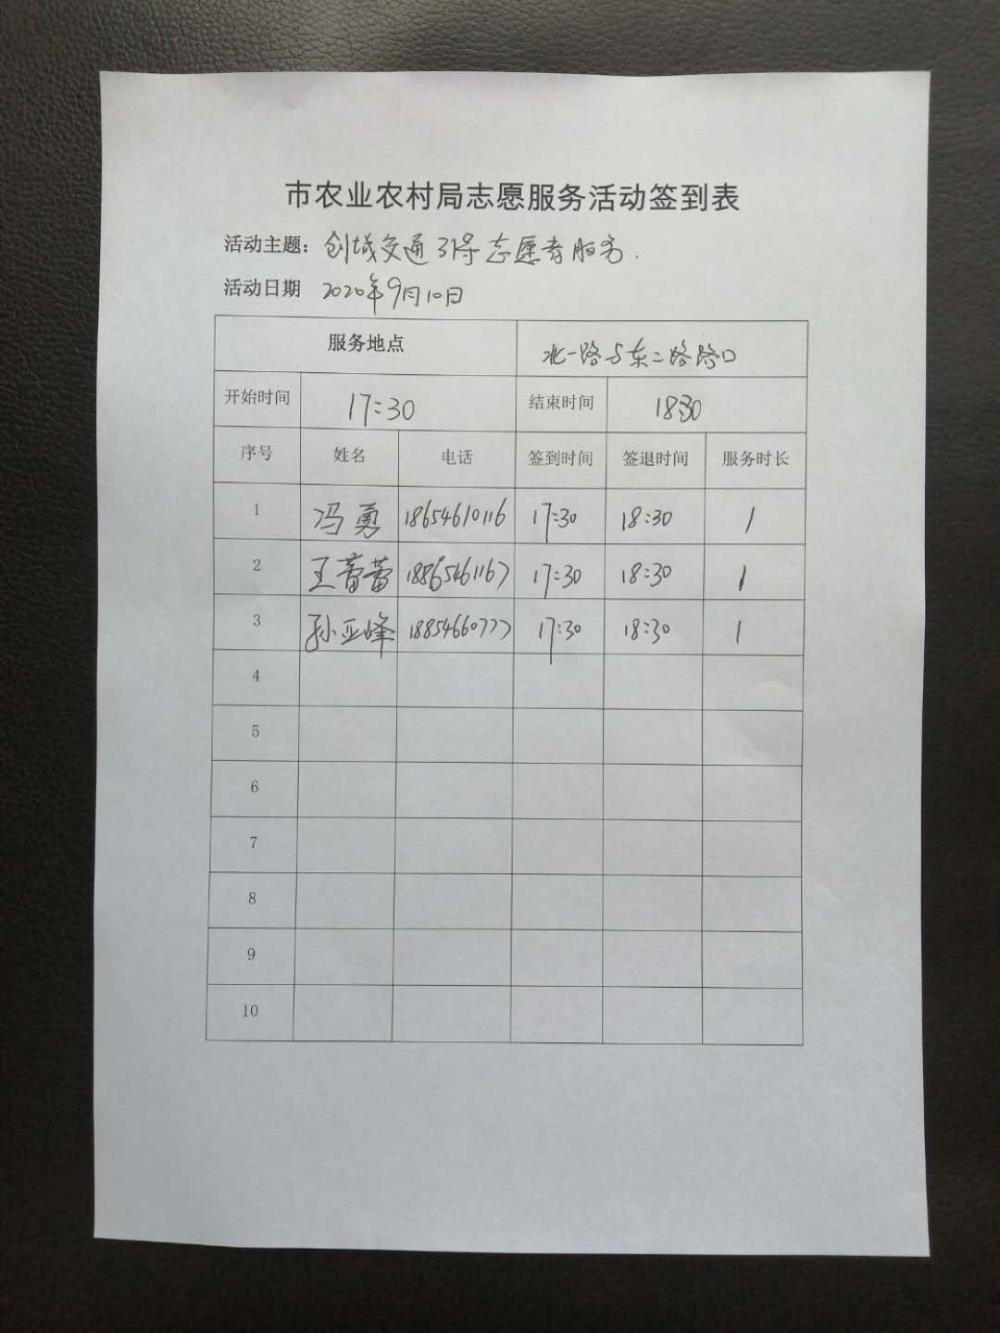 市农业农村局志愿服务活动签到表
活动主题：创城交通引导志愿者服务.
活动日期 2020年9月10日
服务地点 北一路与东二路路口
开始时间 17:30 结束时间 18:30
序号 姓名 电话 签到时间 签退时间 服务时长
1 冯勇 18654610116 17:30 18:30 1
2 王蕾蕾 18865461167 17:30 18:30 1
3 孙亚峰 18854660777 17:30 18:30 1
4
5
6
7
8
9
10